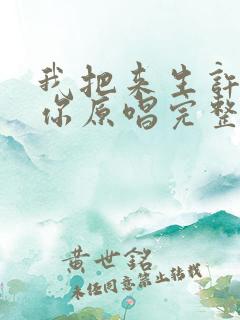 我把来生许
你原唱完整
黄世铭
未经同意禁止转载